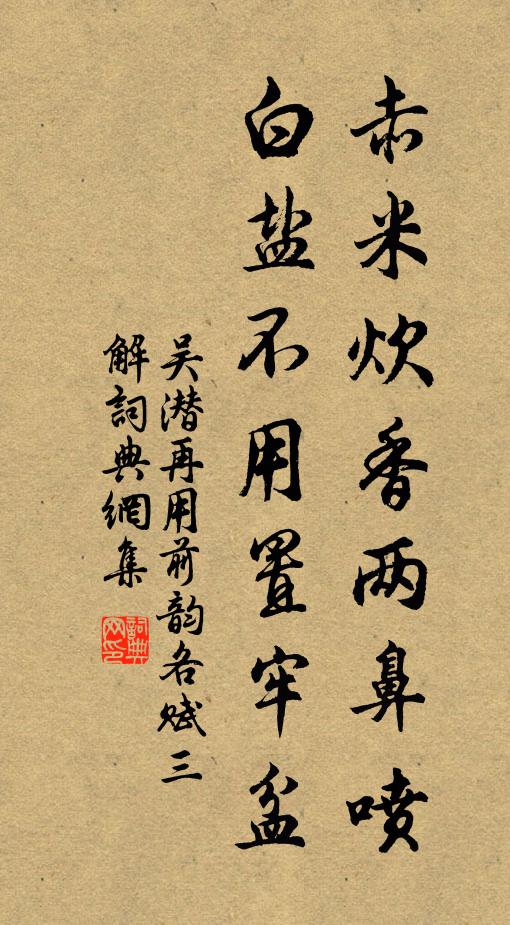 赤米炊香两鼻喷
白盐不用置牢盆
吴潜再用前韵各赋三
解詞典網集
詞典网印